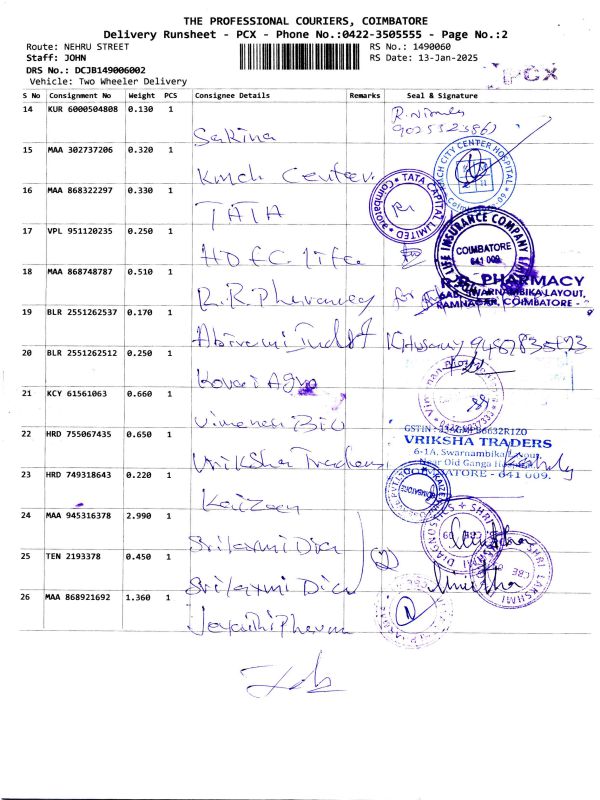 THE PROFESSIONAL COURIERS, COIMBATORE
Delivery Runsheet - PCX - Phone No.:0422-3505555 - Page No.:2
Route: NEHRU STREET
RS No.: 1490060
Staff: JOHN
RS Date: 13-Jan-2025
DRS No.: DCJB149006002
PCX
Vehicle: Two Wheeler Delivery
S No Consignment No Weight PCS Consignee Details Remarks Seal & Signature
14 KUR 6000504808 0.130 1 Sakina
15 MAA 302737206 0.320 1 Kmch Center
16 MAA 868322297 0.330 1 TATA
TATA CAPITAL LIMITED * Coimbatore *
17 VPL 951120235 0.250 1 HDFC Life
LIFE INSURANCE COMPANY
COIMBATORE
641 009
18 MAA 868748787 0.510 1 R.R. Pharmacy for
PHARMACY
RAMNAGAR, COIMBATORE -
19 BLR 2551262537 0.170 1
20 BLR 2551262512 0.250 1 Kovai Agro
21 KCY 61561063 0.660 1 Vimenen Bio
22 HRD 755067435 0.650 1 Vriksha Traders
VRIKSHA TRADERS
6-1A, Swarnambika Layout,
Near Old Ganga
COIMBATORE - 641 009.
23 HRD 749318643 0.220 1 Kaizen
24 MAA 945316378 2.990 1 Srilaxmi Dia
25 TEN 2193378 0.450 1 Srilaxmi Dia
26 MAA 868921692 1.360 1 Jayanthi Pharma